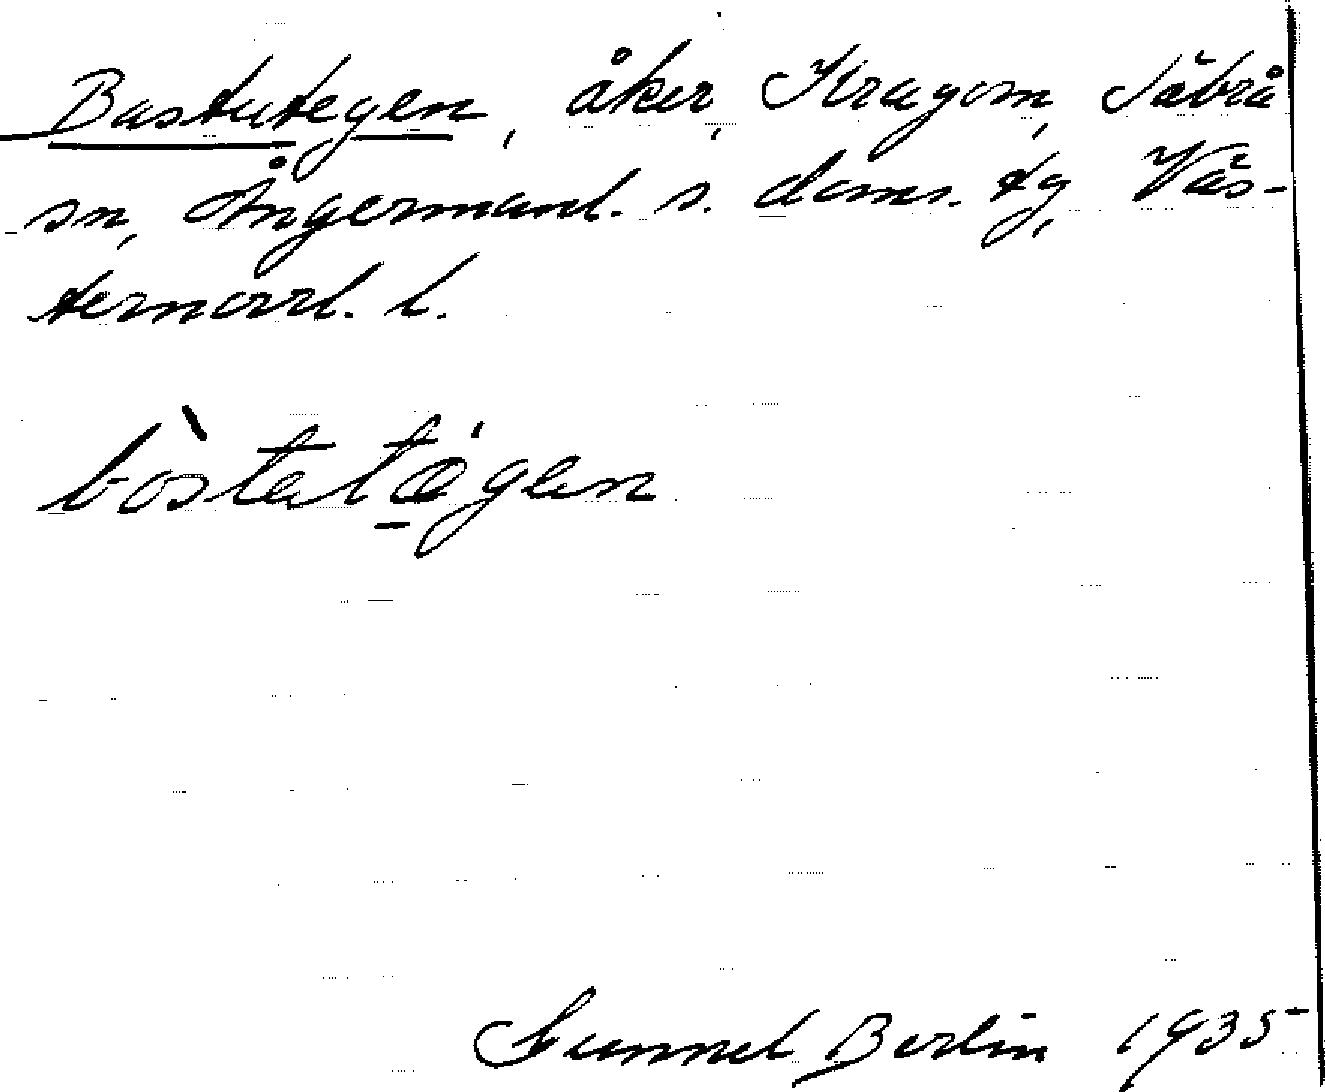 Bastutegen, åker, Kragom, Säbrå
sn, Ångermanl. s. doms. tg, Väs-
ternorrl. l.
bòstatægen
Gunnel Berlin 1935